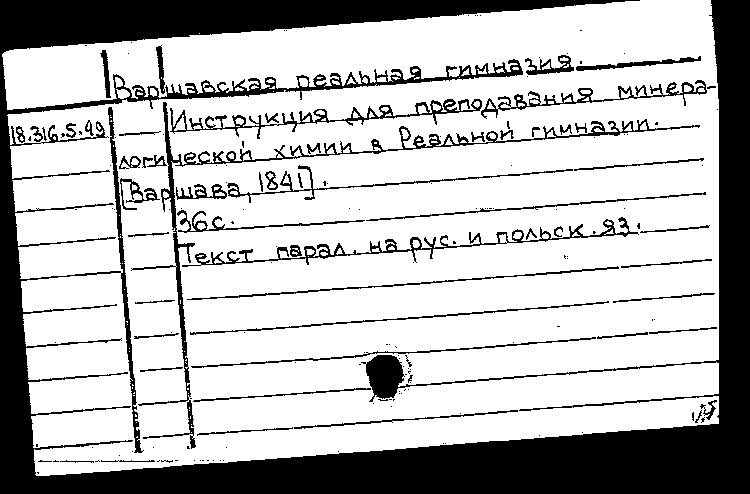 Варшавская реальная гимназия.
18.316.5.49 Инструкция для преподавания минера-
логической химии в Реальной гимназии.
[Варшава, 1841].
36с.
Текст парал. на рус. и польск. яз.